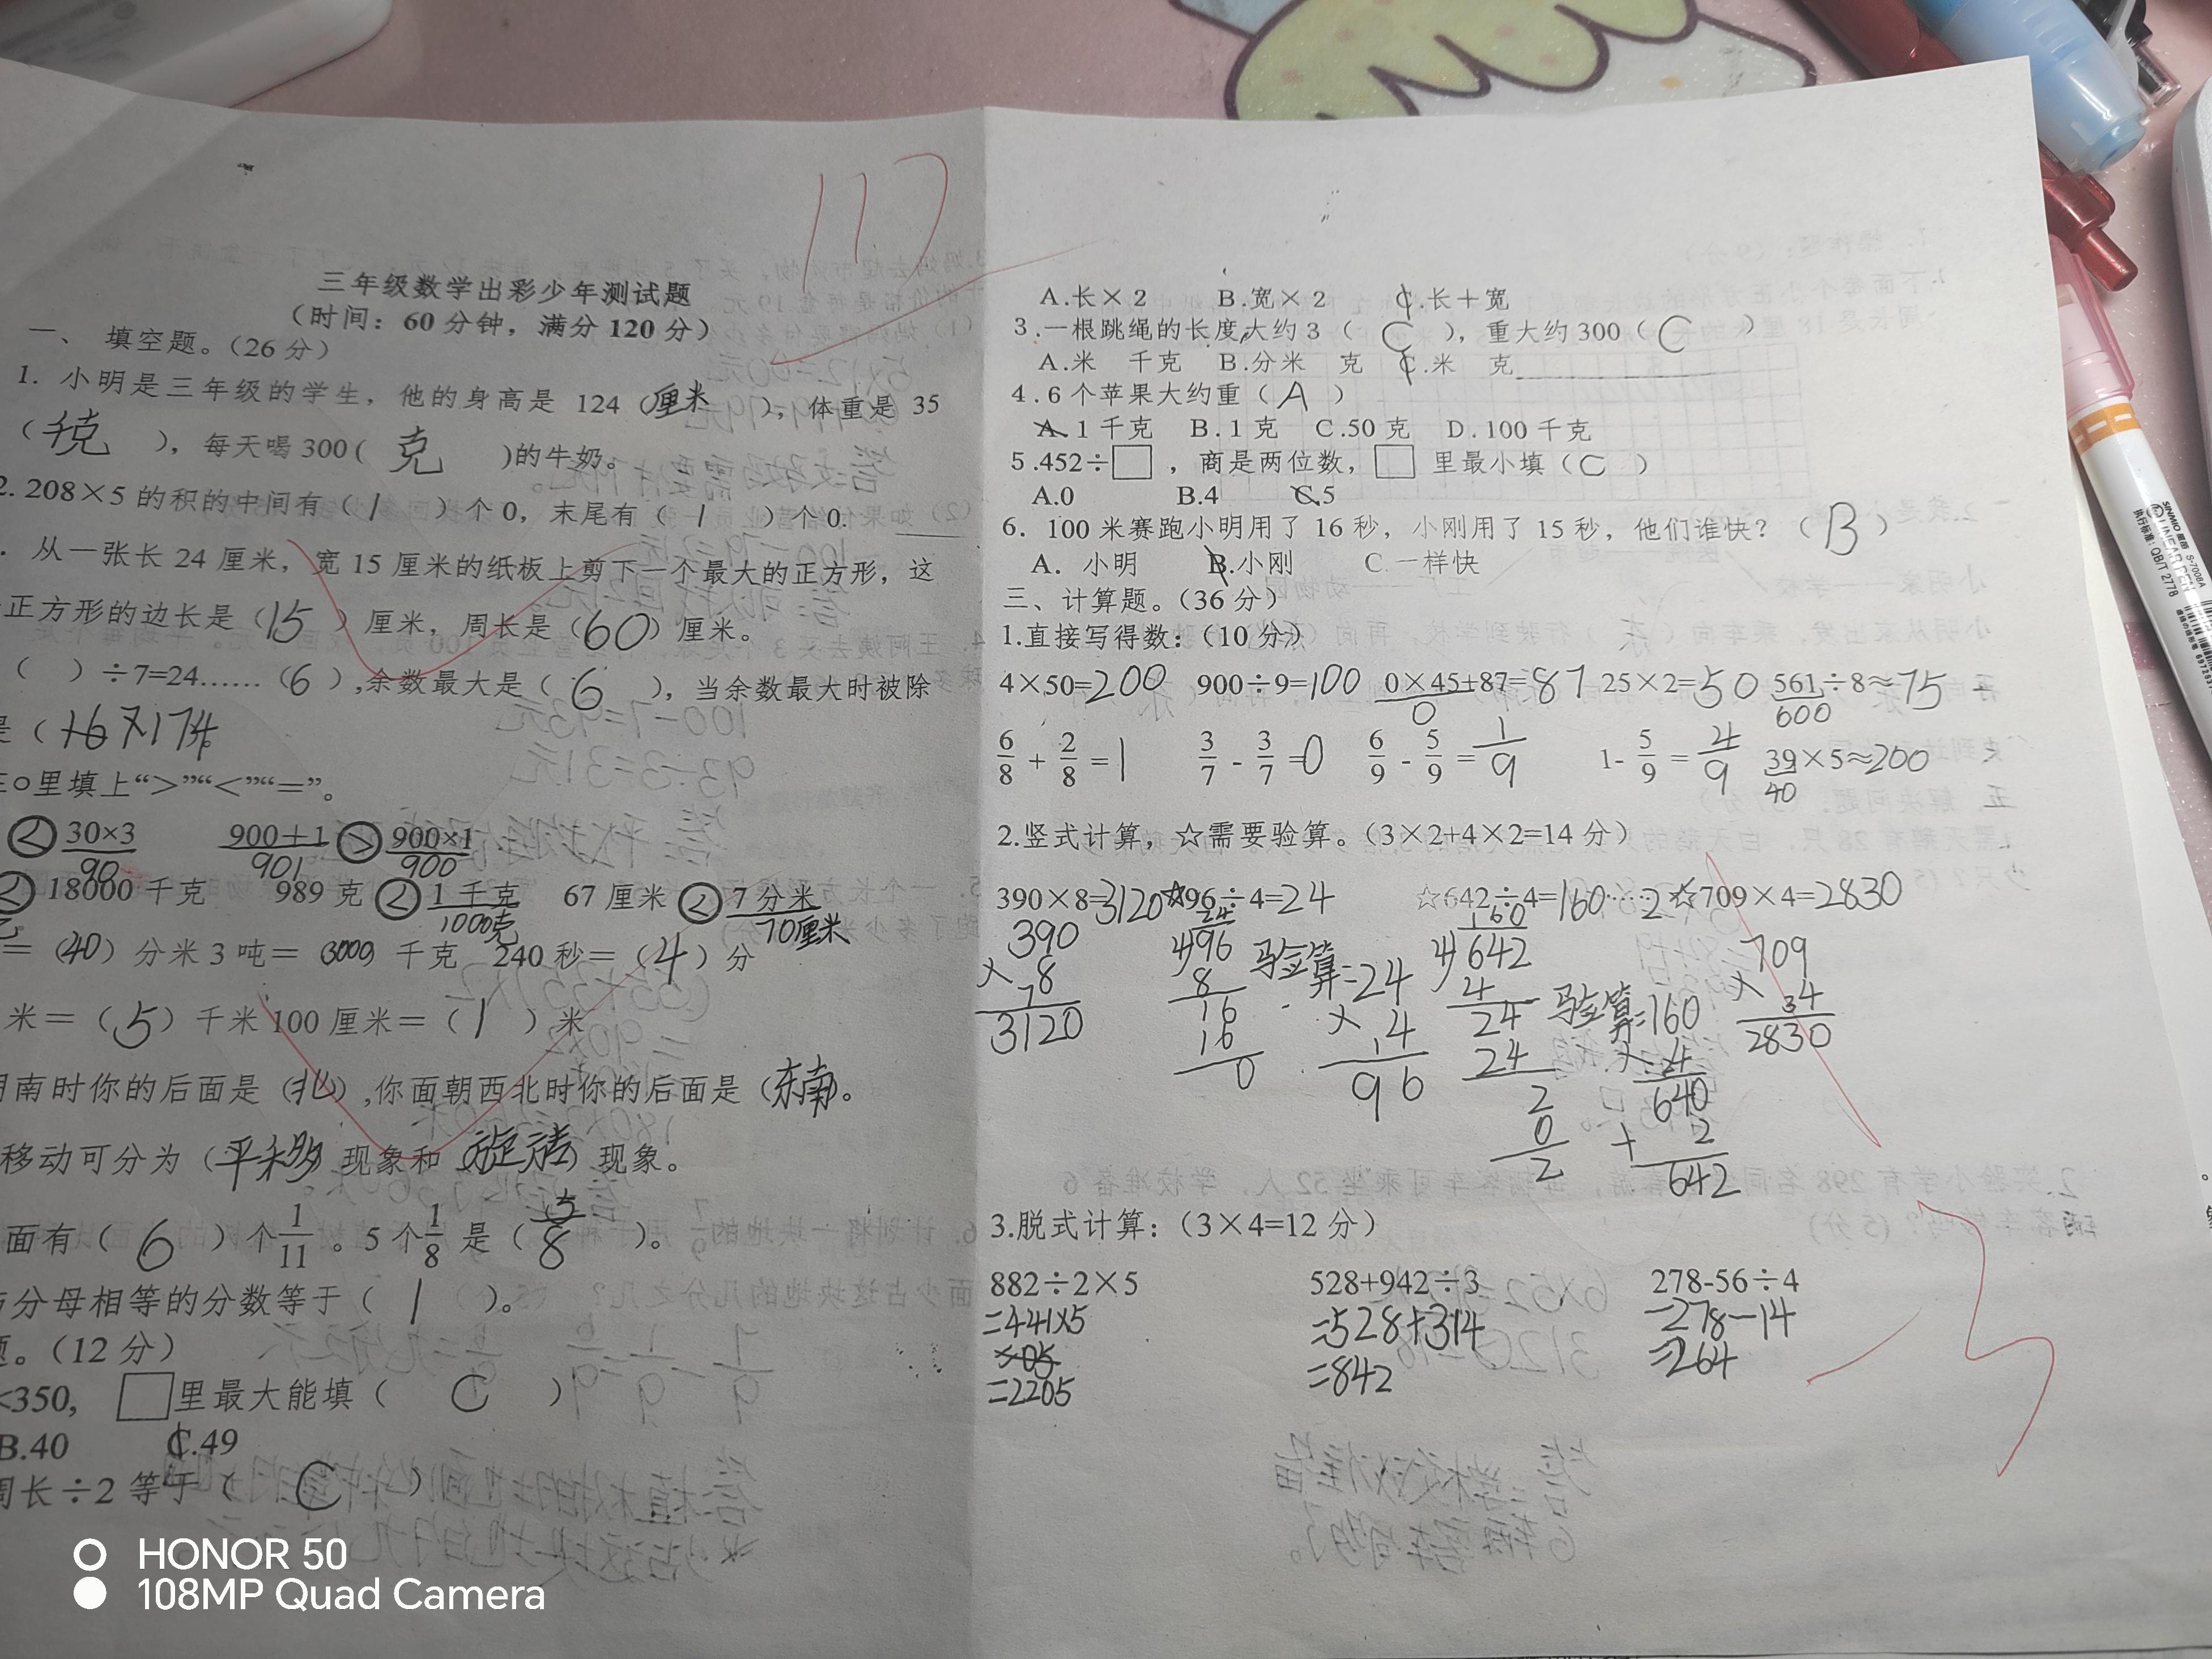 117
三年级数学出彩少年测试题
（时间：60分钟，满分120分）
一、填空题。（26分）
1. 小明是三年级的学生，他的身高是 124（厘米），体重是 35
（千克），每天喝300（克）的牛奶。
2. 208×5 的积的中间有（1）个0，末尾有（1）个0.
. 从一张长 24 厘米，宽 15 厘米的纸板上剪下一个最大的正方形，这
正方形的边长是（15）厘米，周长是（60）厘米。
（ ）÷7=24……（6），余数最大是（6），当余数最大时被除
是（174
在○里填上“>”“<”“=”。
< 30×3 900+1 > 900×1
90 901 900
< 18000 千克 989 克 < 1 千克 67 厘米 < 7 分米
1000克 70厘米
=（40）分米 3 吨=（3000）千克 240 秒=（4）分
米=（5）千米 100 厘米=（1）米
南时你的后面是（北），你面朝西北时你的后面是（东南）。
移动可分为（平移）现象和（旋转）现象。
面有（6）个1/11。5 个1/8 是（5/8）。
与分母相等的分数等于（1）。
题。（12 分）
<350，□里最大能填（C）
B.40 C.49
周长÷2 等于（C）
A.长×2 B.宽×2 C.长＋宽
3.一根跳绳的长度大约3（C），重大约300（C）
A.米 千克 B.分米 克 C.米 克
4.6个苹果大约重（A）
A.1千克 B.1克 C.50克 D.100千克
5.452÷□，商是两位数，□里最小填（C）
A.0 B.4 C.5
6. 100 米赛跑小明用了 16 秒，小刚用了 15 秒，他们谁快？（B）
A. 小明 B.小刚 C.一样快
三、计算题。（36分）
1.直接写得数：（10分）
4×50=200 900÷9=100 0×45+87=87 25×2=50 561÷8≈75
0 600
6/8 + 2/8 =1 3/7 - 3/7 =0 6/9 - 5/9 = 1/9 1- 5/9 = 4/9 39×5≈200
40
2.竖式计算，☆需要验算。（3×2+4×2=14分）
390×8=3120 ☆96÷4=24 ☆642÷4=160……2 ☆709×4=2830
390
×8
7
3120
24
4)96
8
16
16
0
验算:24
×4
1
96
160
4)642
4
24
24
2
0
2
验算:160
×4
2
640
+ 2
642
709
×4
3
2830
3.脱式计算：（3×4=12分）
882÷2×5 528+942÷3 278-56÷4
=441×5 =528+314 =278-14
=2205 =842 =264
-3
HONOR 50
108MP Quad Camera